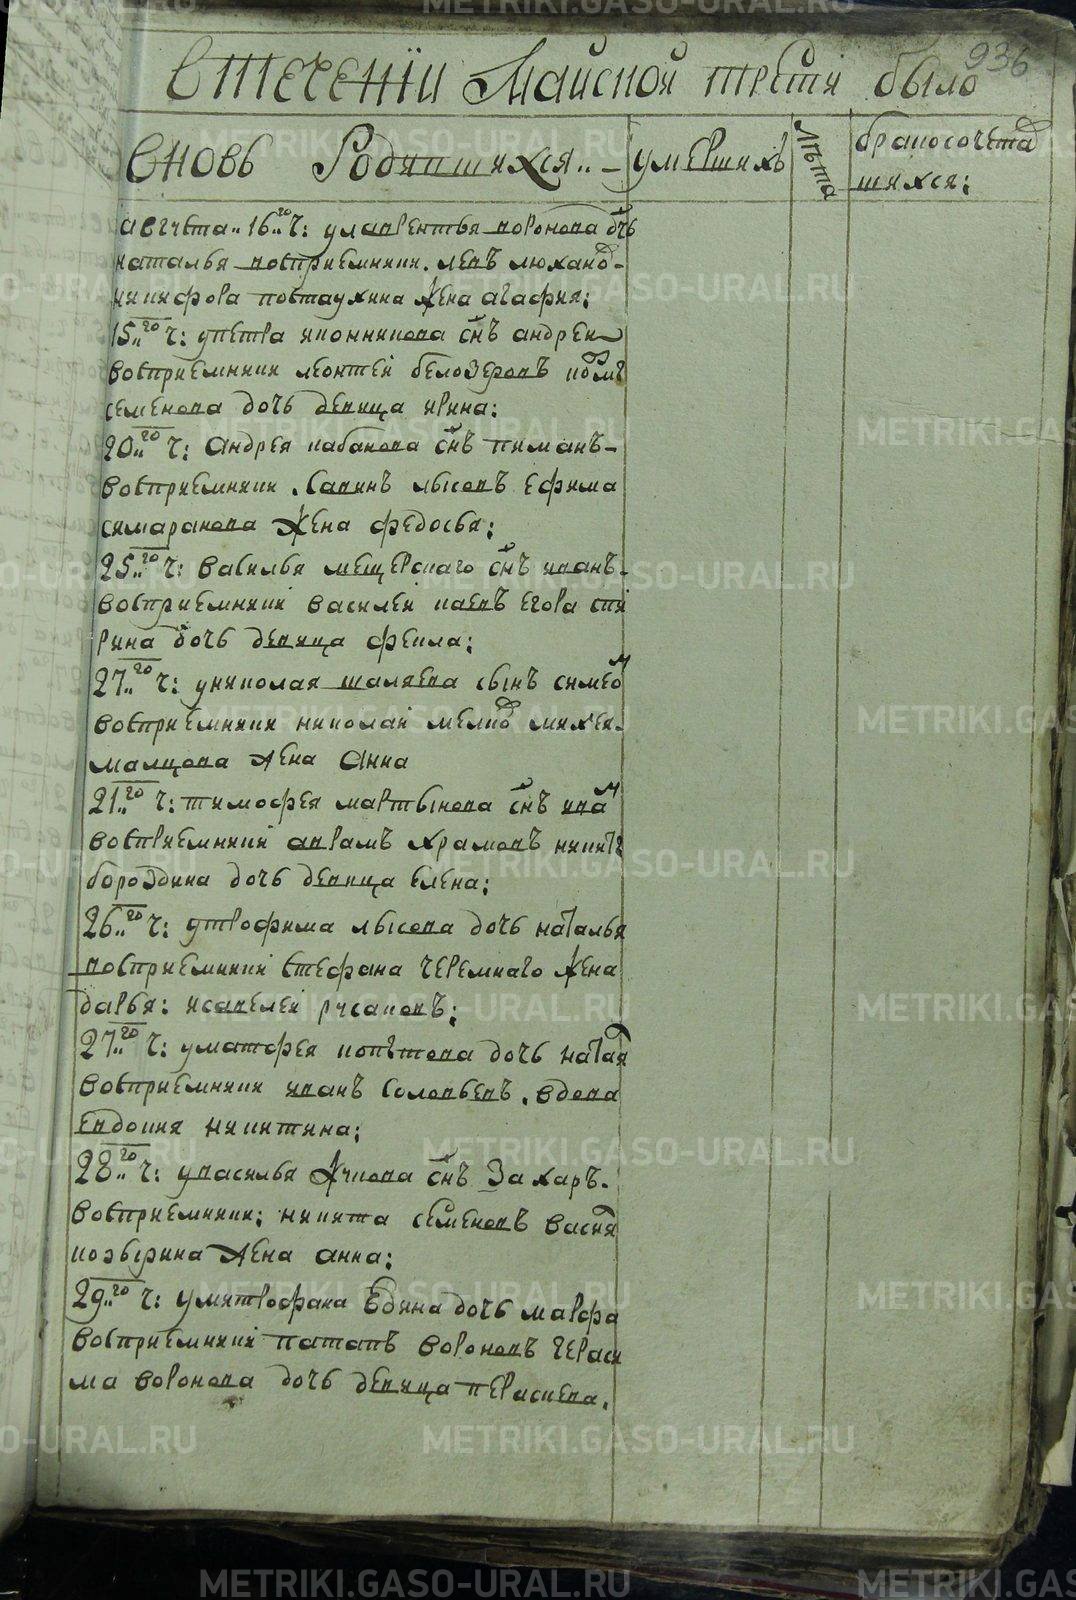 936
В течении Майской трети было
Вновь Родившихся
умершихъ
лѣта
бракосочета
шихся:
августа 16го ч: у лаврентья воронова дчь
наталья восприемники. левъ люханд
никифора постаухина жена агафия:
15го ч: у петра иконникова снъ андреи
восприемники леонтеи белозеровъ козмы
семенова дочь девица ирина:
20го ч: андрея кабакова снъ пиманъ
восприемники. Савинъ лысовъ ефима
симаранова жена федосья:
25го ч: василья мещерскаго снъ иванъ
восприемники василеи каевъ егора спи
рина дочь девица фекла:
27го ч: у николая шаляева сынъ симео
восприемники николаи мелко михеи
малцова жена Анна
21го ч: тимофея мартынова снъ ива
восприемники аврамъ храмовъ никиты
бороздина дочь девица елена:
26го ч: у трофима лысова дочь наталья
восприемники стефана черемнаго жена
дарья: исавелеи русановъ:
27го ч: у матфея копытова дочь натая
восприемники иванъ Соловьевъ. вдова
евдокия никитина:
28го ч: у василья жукова снъ Захаръ.
восприемники: никита семеновъ васия
козырина жена анна:
29го ч: у митрофана Едина дочь марфа
восприемники патапъ вороновъ гераси
ма воронова дочь девица пераскева.
METRIKI.GASO-URAL.RU